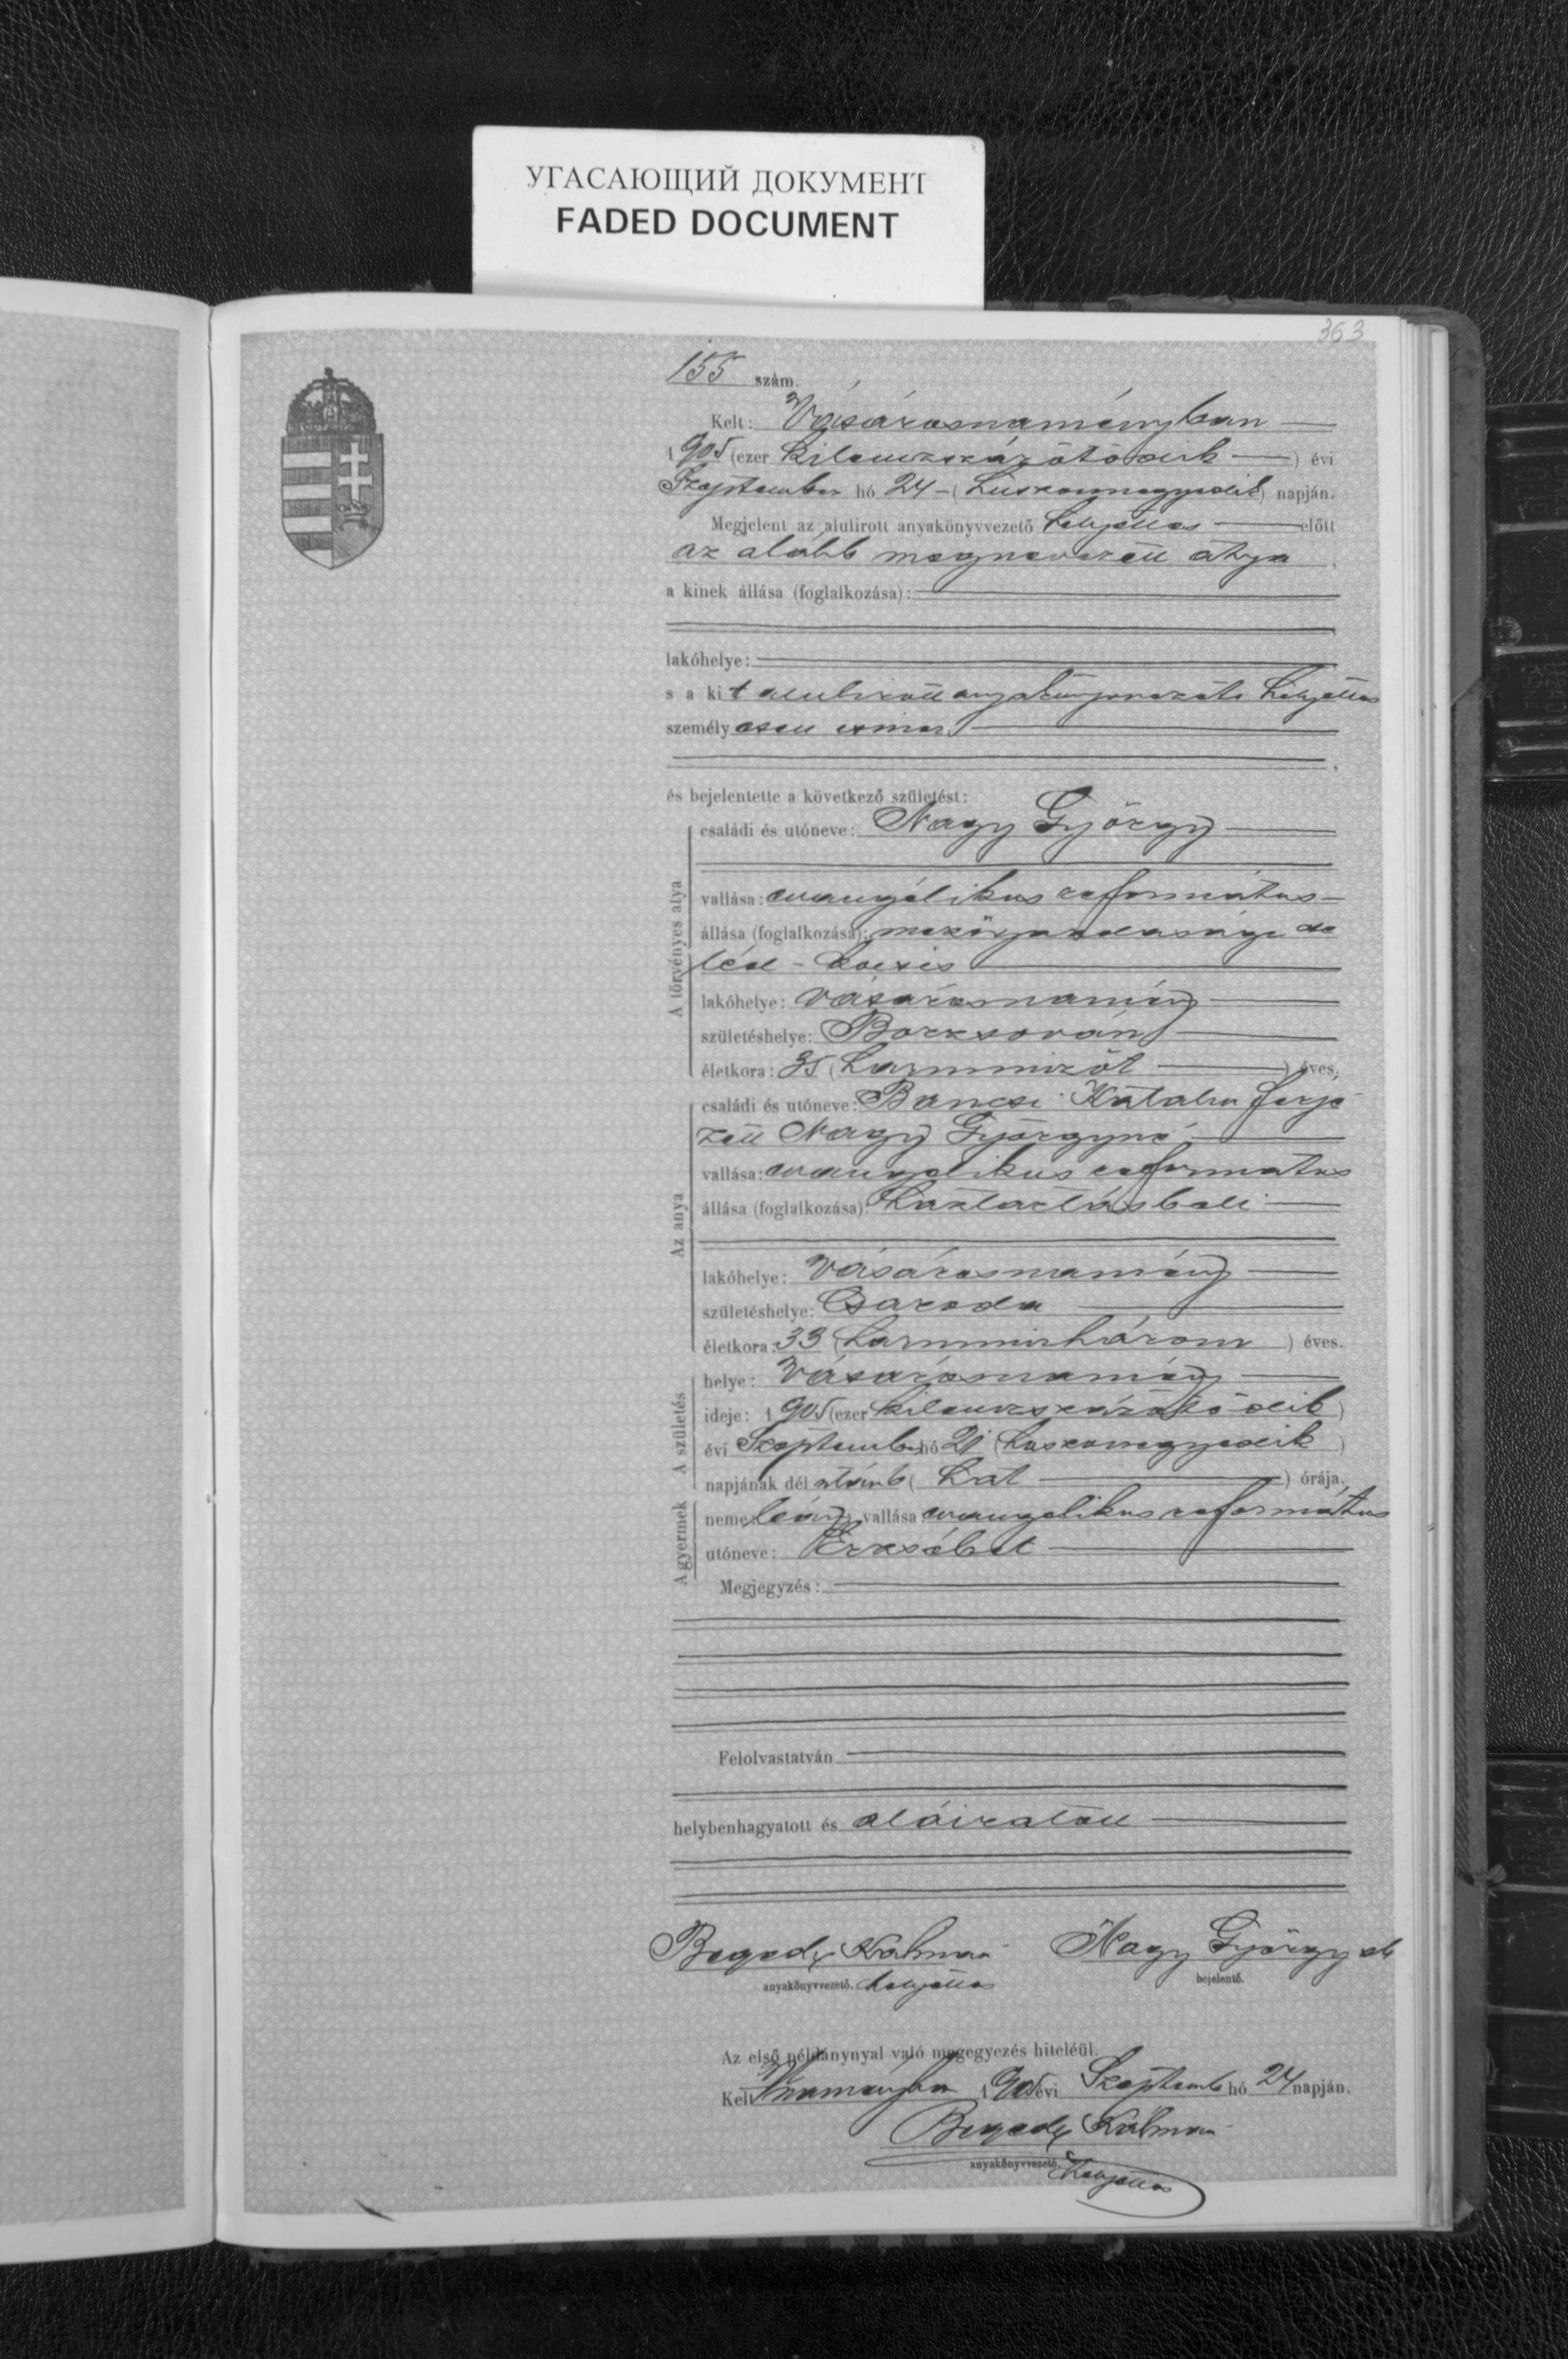 УГАСАЮЩИЙ ДОКУМЕНТ
FADED DOCUMENT
363
155 szám.
Kelt: Vásárosnaményban
1905 (ezer kilenczszázötödik) évi
Szeptember hó 24 - (huszonnegyedik) napján.
Megjelent az alulirott anyakönyvvezető helyettes előtt
az alább megnevezett atya,
a kinek állása (foglalkozása):
lakóhelye:
s a kit alulirott anyakönyvvezető helyettes
személyesen ismer
,
és bejelentette a következő születést:
A törvényes atya
családi és utóneve: Nagy György
vallása: evangélikus református
állása (foglalkozása): mezőgazdasági cse
léd - kocsis
lakóhelye: Vásárosnamény
születéshelye: Borzsován
életkora: 35 (harminczöt) éves.
Az anya
családi és utóneve: Bancsi Katalin férje
zett Nagy Györgyné
vallása: evangelikus református
állása (foglalkozása): háztartásbeli
lakóhelye: Vásárosnamény
születéshelye: Csaroda
életkora: 33 (harminczhárom) éves.
A születés
helye: Vásárosnamény
ideje: 1905 (ezer kilenczszázötödik)
évi Szeptemb. hó 21 (huszonegyedik)
napjának dél után 6 (hat) órája.
A gyermek
neme: leány; vallása: evangelikus református
utóneve: Erzsébet
Megjegyzés:
Felolvastatván
helybenhagyatott és aláiratott
Begedy Kálmán Nagy György
anyakönyvvezető. helyettes bejelentő.
Az első példánynyal való megegyezés hiteléül.
Kelt Vnaményban 1905 évi Szeptemb hó 24 napján.
Begedy Kálmán
anyakönyvvezető. helyettes